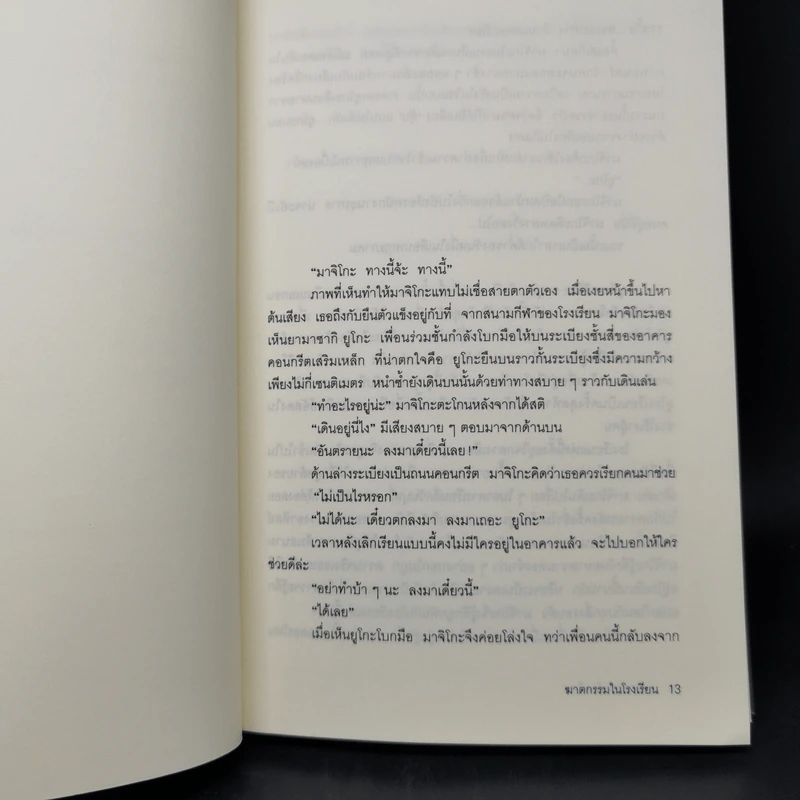 “มาจิโกะ ทางนี้จ้ะ ทางนี้”
ภาพที่เห็นทำให้มาจิโกะแทบไม่เชื่อสายตาตัวเอง เมื่อเงยหน้าขึ้นไปหา
ต้นเสียง เธอถึงกับยืนตัวแข็งอยู่กับที่ จากสนามกีฬาของโรงเรียน มาจิโกะมอง
เห็นยามาซากิ ยูโกะ เพื่อนร่วมชั้นกำลังโบกมือให้บนระเบียงชั้นสี่ของอาคาร
คอนกรีตเสริมเหล็ก ที่น่าตกใจคือ ยูโกะยืนบนราวกั้นระเบียงซึ่งมีความกว้าง
เพียงไม่กี่เซนติเมตร หนำซ้ำยังเดินบนนั้นด้วยท่าทางสบาย ๆ ราวกับเดินเล่น
“ทำอะไรอยู่น่ะ” มาจิโกะตะโกนหลังจากได้สติ
“เดินอยู่นี่ไง” มีเสียงสบาย ๆ ตอบมาจากด้านบน
“อันตรายนะ ลงมาเดี๋ยวนี้เลย!”
ด้านล่างระเบียงเป็นถนนคอนกรีต มาจิโกะคิดว่าเธอควรเรียกคนมาช่วย
“ไม่เป็นไรหรอก”
“ไม่ได้นะ เดี๋ยวตกลงมา ลงมาเถอะ ยูโกะ”
เวลาหลังเลิกเรียนแบบนี้คงไม่มีใครอยู่ในอาคารแล้ว จะไปบอกให้ใคร
ช่วยดีล่ะ
“อย่าทำบ้า ๆ นะ ลงมาเดี๋ยวนี้”
“ได้เลย”
เมื่อเห็นยูโกะโบกมือ มาจิโกะจึงค่อยโล่งใจ ทว่าเพื่อนคนนี้กลับลงจาก
ฆาตกรรมในโรงเรียน 13